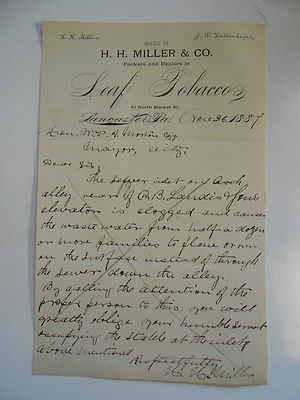 H. H. Miller.
OFFICE OF
H. H. MILLER & CO.
Packers and Dealers in
Leaf Tobacco,
51 North Market St.
Lancaster, Pa. Nov 26 1887
Hon. Wm. A. Morton
Mayor, City.
Dear Sir,
The sewer inlet on Arch
alley rear of B. Landis flour
elevator is clogged and causes
the waste water from half a dozen
or more families to flow down
on the surface instead of through
the sewer down the alley.
By calling the attention of the
proper person to this, you will
greatly oblige your humble servant
occupying the stable at the inlet
above mentioned
Respectfully
H. H. Miller